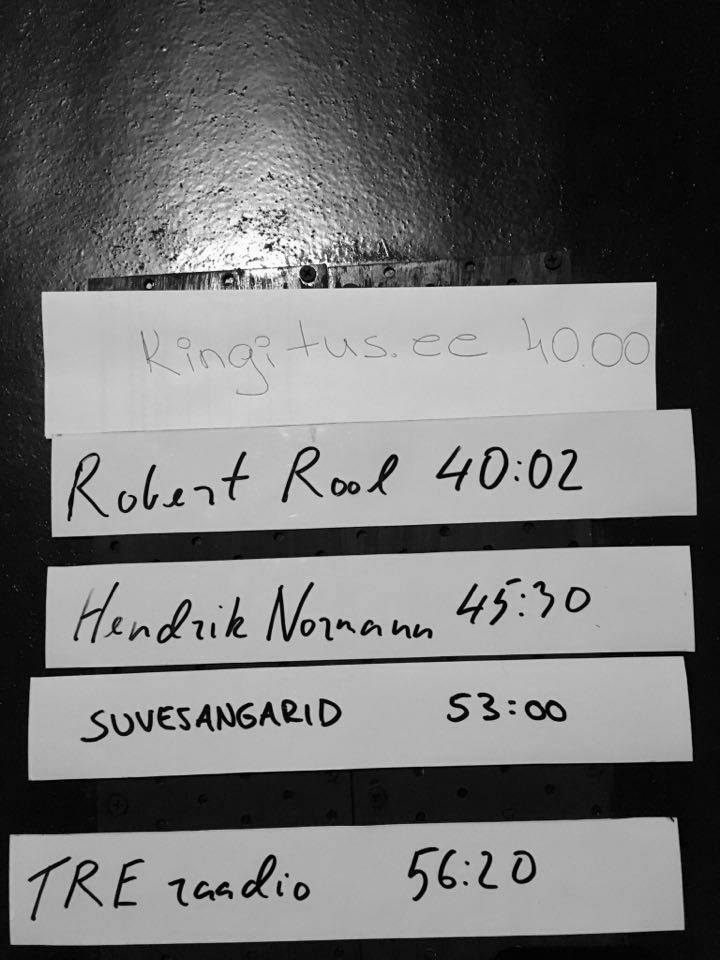 Kingitus.ee 40.00
Robert Rool 40:02
Hendrik Normann 45:30
SUVESANGARID 53:00
TRE raadio 56:20